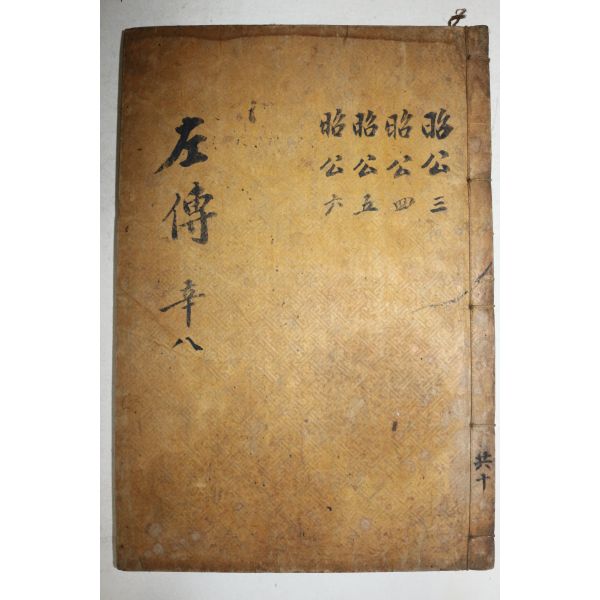 昭公三
昭公四
昭公五
昭公六
左傳 辛八
共十